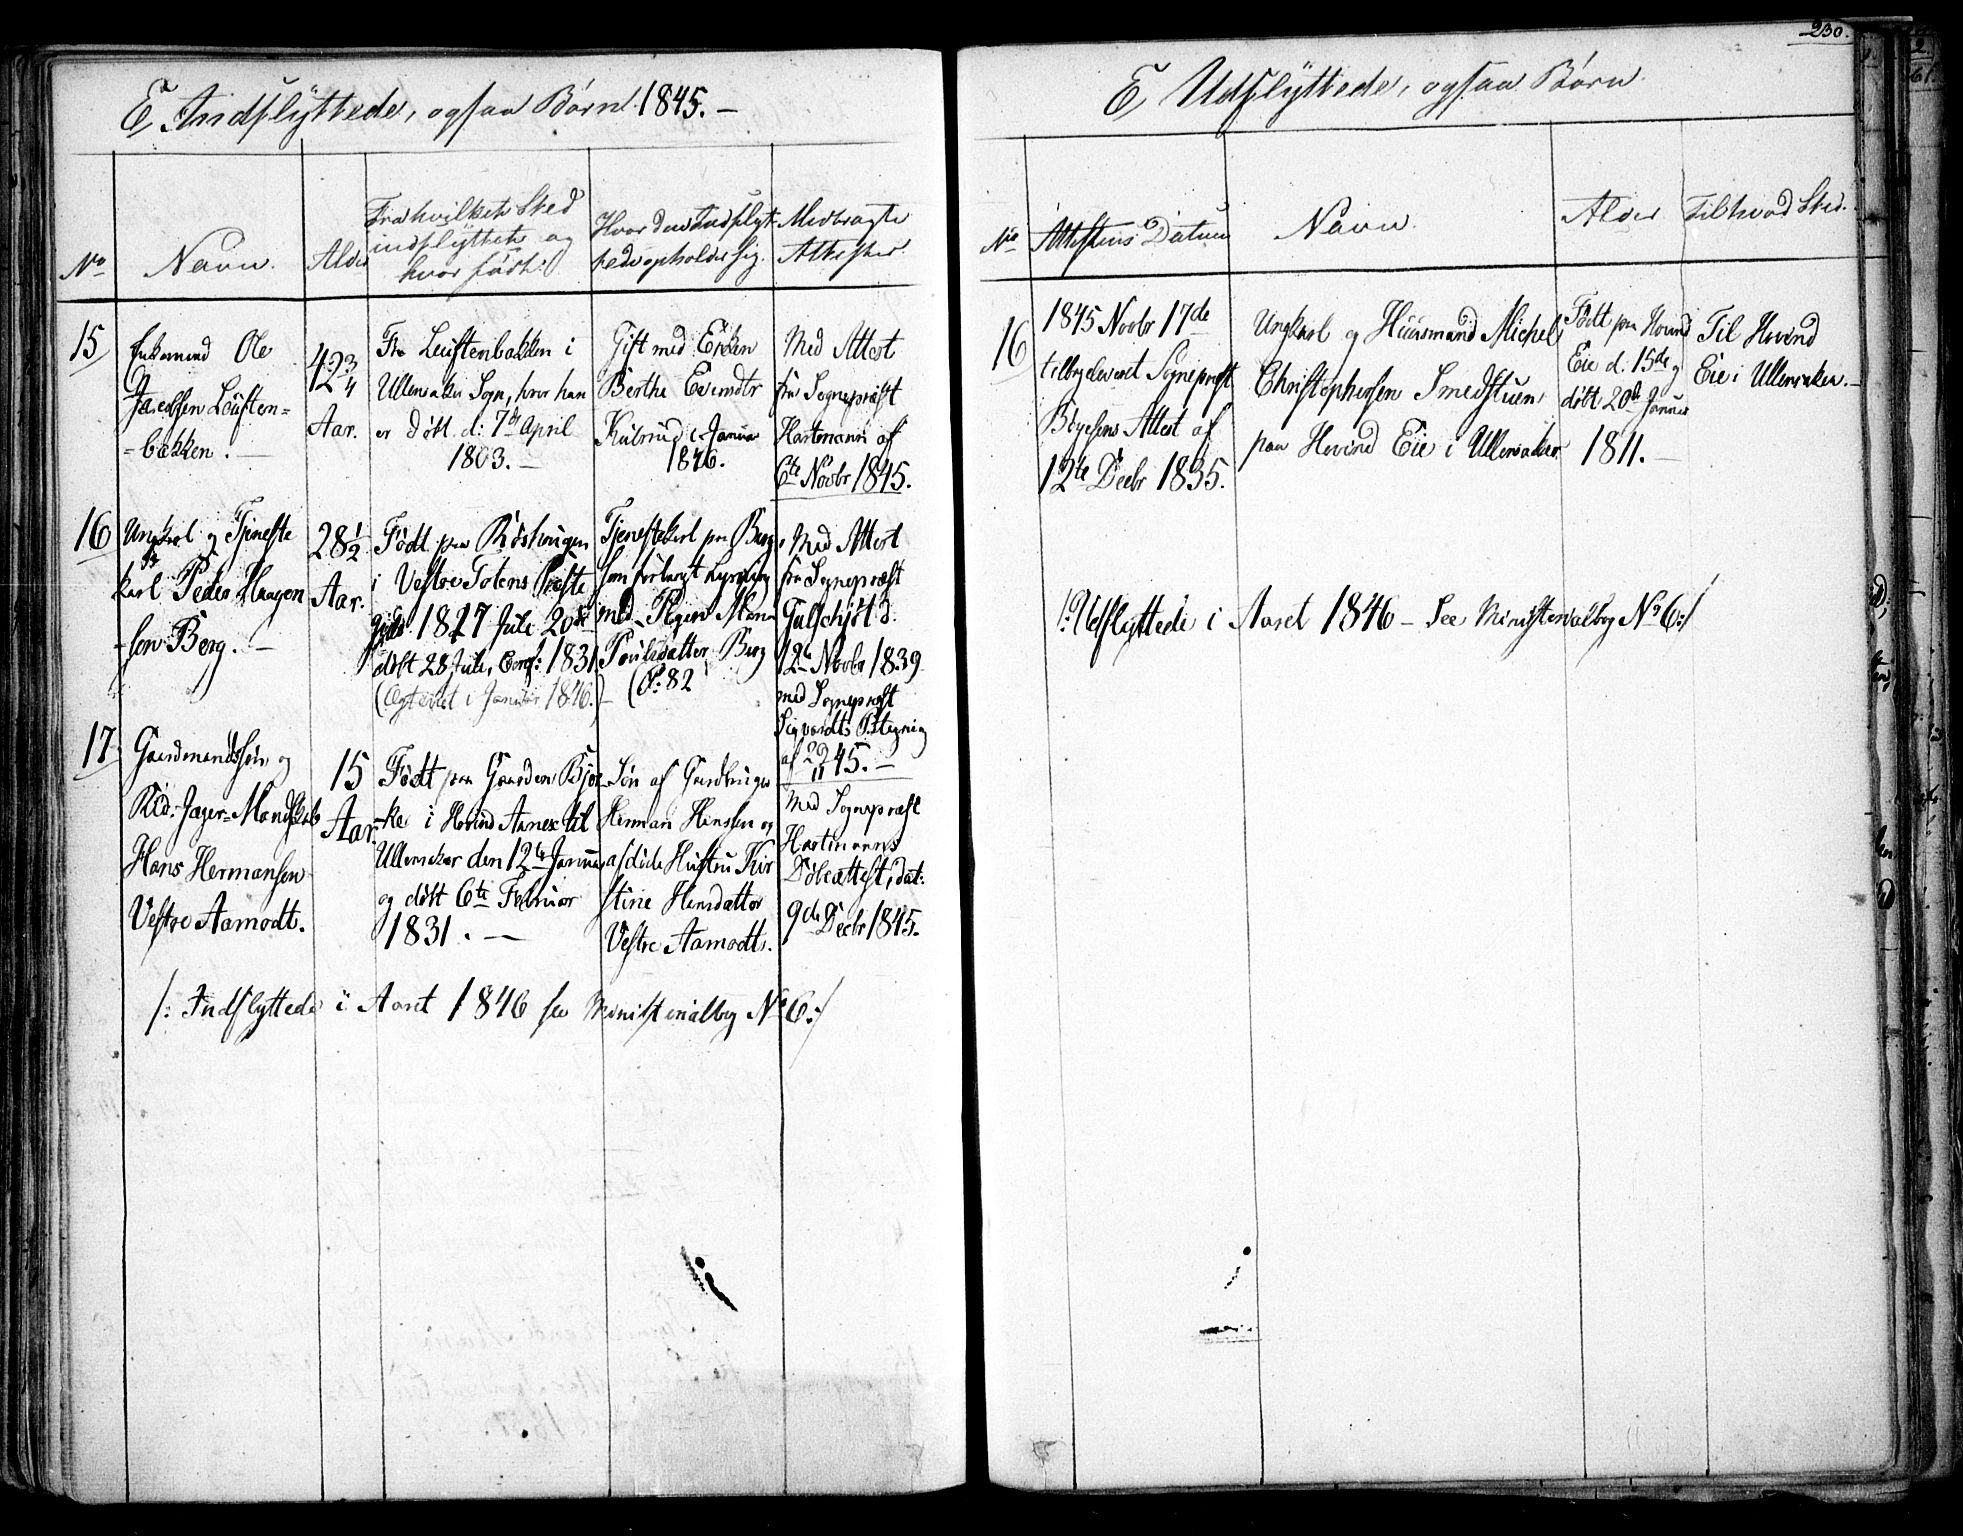 E, Indflyttede, ogsaa Børn. 1845. —
No
Navn.
Alder
Fra hvilket Sted
indflyttet og
hvor født.
Hvor den Indflyt-
tede opholder sig.
Medbragte
Attester.
15
Enkemand Ole
Jacobsen Løusten=
=bakken. —
42 3/4
Aar.
Fra Løustenbakken i
Ullensaker Sogn, hvor han
er død d: 7de April
1803. —
Gift med Enken
Berthe Evensdtr
Kulsrud i Januar
1846.
Med Attest
fra Sognepræst
Hartmann af
6te Novbr 1845.
16
Ungkarl og Tjeneste
karl Peder Haagen
-sen Berg. —
28 1/2
Aar.
Født paa
i Vestre Totens Præste
gjeld 1817 Juli 20de
døbt 28 Juli, Conf: 1831
(Ægteviet i Januar 1846.)
Tjenestekarl paa Berg,
som forlangt Lysning
med Pigen
Poulsdatter Berg
(P: 82
Med Attest
fra Sognepræst
d.
12te Novbr 1839
med Sognepræst
Sigvardts Paategning
af 29/11 45. —
17
Gaardmandssøn og
Rid: Jæger=Mandskab
Hans Hermansen
Vestre Aamodt.
15
Aar.
Født paa Gaarden Bjør
-ke i Hovind Annex til
Ullensaker den 12te Januar
og døbt 6te Februar
1831. —
Søn af Gaardbruger
Herman Hansen og
afdøde Hustru Kir
stine Hansdatter
Vestre Aamodt.
Med Sognepræst
Hartmanns
Døbeattest, dat:
9de Decbr 1845.
/: Indflyttede i Aaret 1846 see Ministerialbog No 6 :/
230.
E, Udflyttede, ogsaa Børn.
No
Attestens Datum
Navn.
Alder
Til hvad Sted.
16
1845 Novbr 17de
tilbageleveret Sognepræst
Bøyesens Attest af
12te Decbr 1835.
Ungkarl og Huusmand Michel
Christophersen Smedstuen,
paa Hovind Eie i Ullensaker
Født paa Hovind
Eie d. 15de og
døbt 20de Januar
1811. —
Til Hovind
Eie i Ullensaker. —
/: Udflyttede i Aaret 1846 — See Ministerialbog No 6 :/